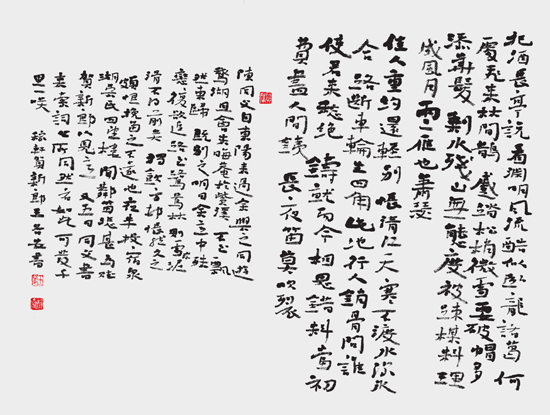 把酒長亭說看淵明風流酷似臥龍諸葛何
處飛來林間鵲蹙踏松梢微雪要破帽多
添華髮剩水殘山無態度被疎梅料理
成風月兩三雁也蕭瑟
佳人重約還輕別悵清江天寒不渡水深冰
合路斷車輪生四角此地行人銷骨問誰
使君來愁絕鑄就而今相思錯料當初
費盡人間鐵長夜笛莫吹裂
陳同父自東陽來過余與之同遊
鵝湖且會朱晦庵於紫溪不至飄
然東歸既別之明日余意中殊
戀復欲追路至鷺鷥林則雪深泥
滑不得前矣獨飲方村悵然久之
頗恨挽留之不遂也夜半投宿泉
湖吳氏四望樓聞鄰笛悲甚為賦
賀新郎以見意又五日同父書
來索詞心所同然者如此可發千
里一笑 賀新郎王書